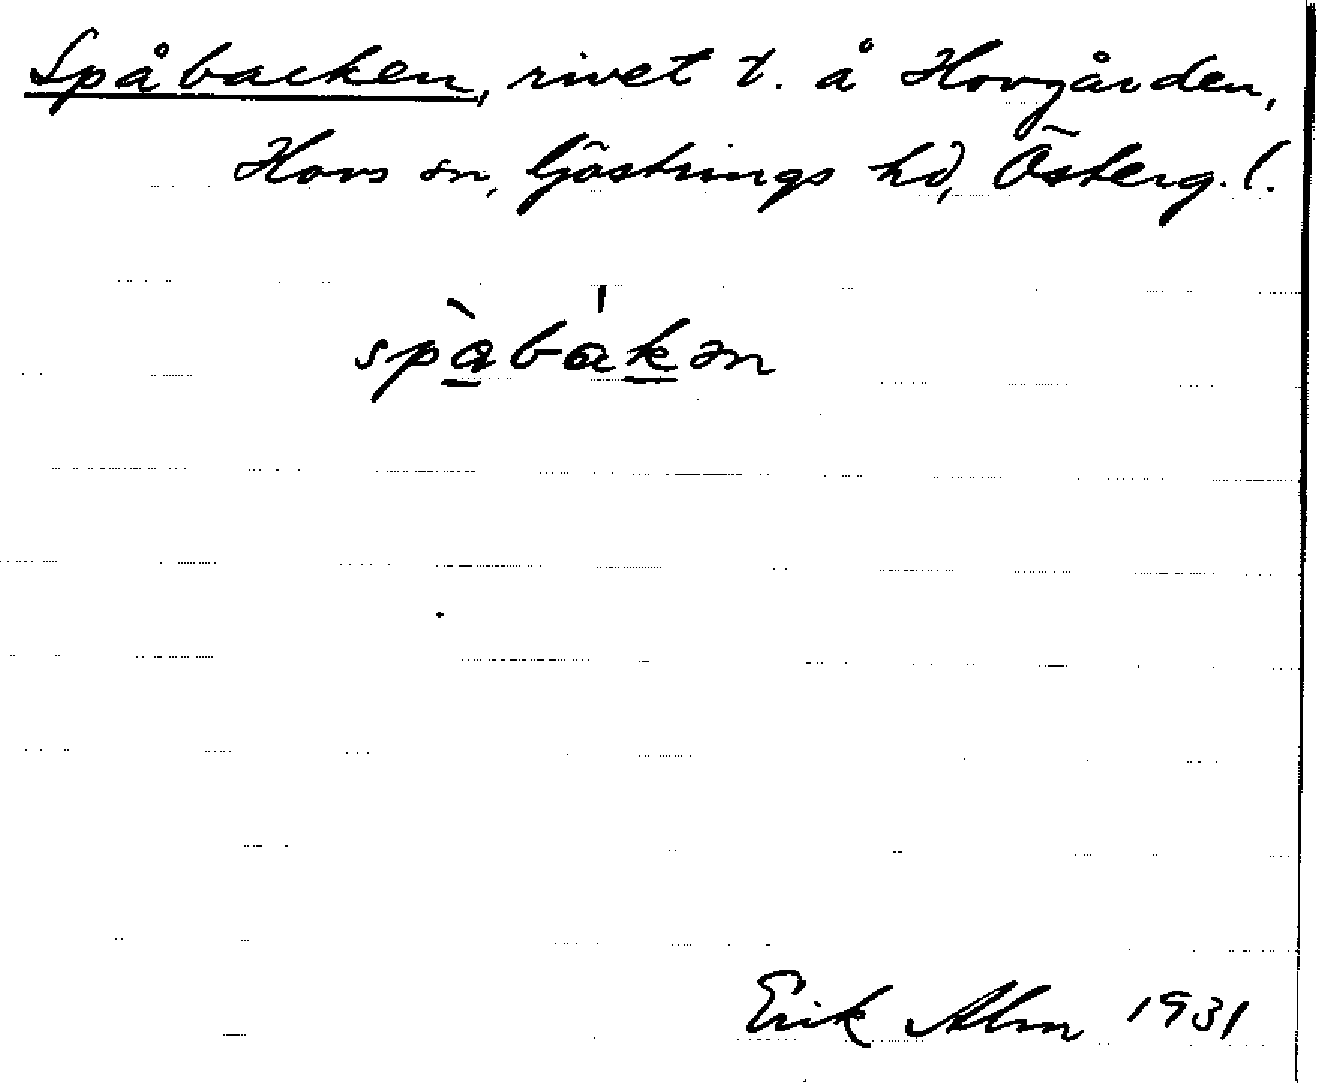 Spåbacken, rivet t. å Hovgården,
Hovs sn, Göstrings hd, Österg. l.
spàbákən
Erik Alm 1931